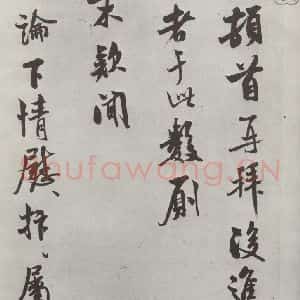 頓首再拜後進
者于此數
未款聞
論下情慰抃屬
Shufawang.CN